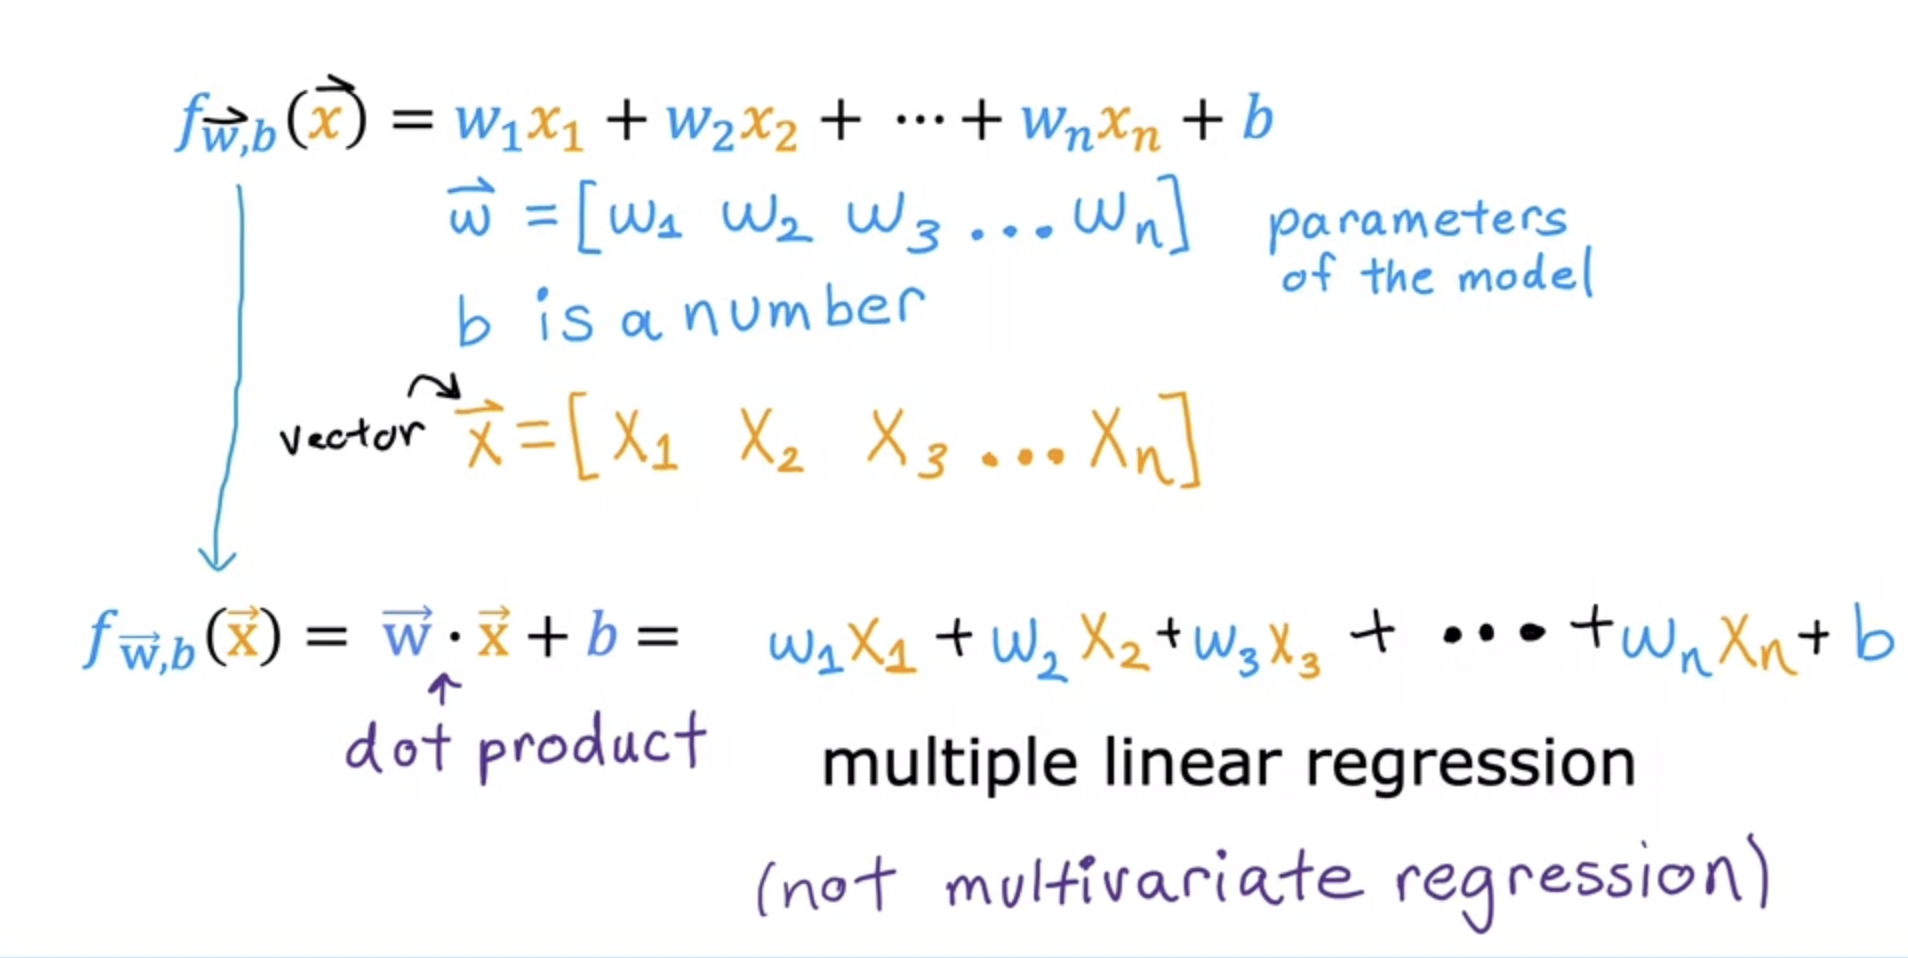 f_{\vec{w},b}(\vec{x}) = w₁x₁ + w₂x₂ + ⋯ + wₙxₙ + b
\vec{w} = [w₁ w₂ w₃ ... wₙ] parameters of the model
b is a number
vector \vec{x} = [x₁ x₂ x₃ ... xₙ]
f_{\vec{w},b}(\vec{x}) = \vec{w} · \vec{x} + b = w₁x₁ + w₂x₂ + w₃x₃ + ... + wₙxₙ + b
dot product
multiple linear regression
(not multivariate regression)